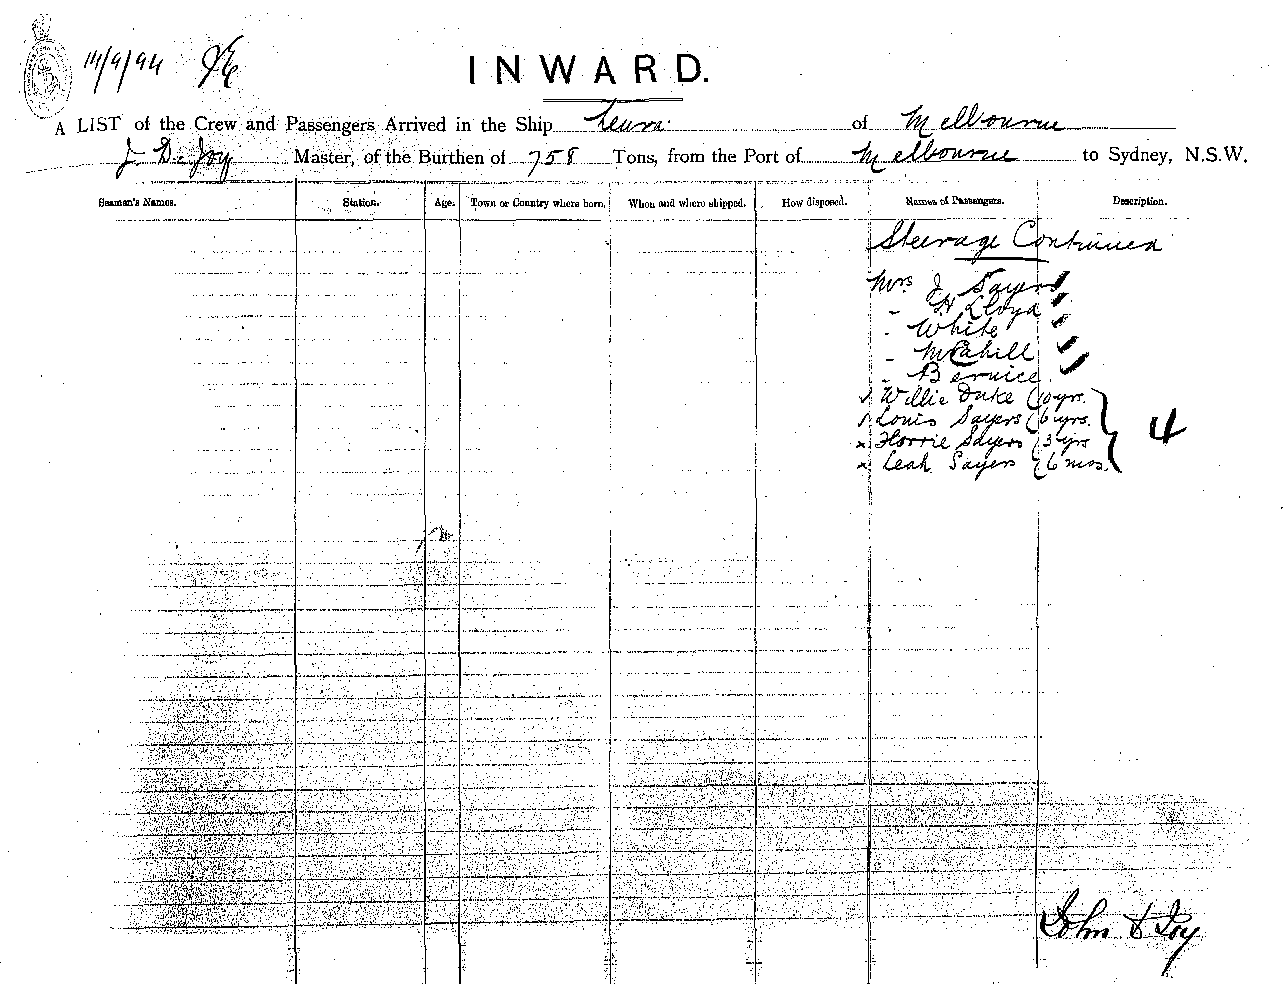 14/9/94
INWARD.
A LIST of the Crew and Passengers Arrived in the Ship Leura of Melbourne
J. D. Joy Master, of the Burthen of 758 Tons, from the Port of Melbourne to Sydney, N.S.W.
Seamen's Names. Station. Age. Town or Country where born. When and where shipped. How disposed. Names of Passengers. Description.
Steerage Continued
Mrs J Sayers
- H Lloyd
- White
- McCahill
- Bernice
Willie Duke (10 yrs.
Louis Sayers (6 yrs.
x Horrie Sayers (3 yrs
x Leah Sayers (6 mos.
} 4
John D Joy